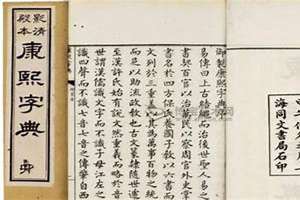 海同文書局石印
御製康熙字典序
易傳曰上古結繩而治後世聖人易之
書契百官以治萬民以察周官外史掌
書名於四方保氏養國子敎以六書而
文列於三重蓋以其為萬事百物之統
而足以助流政敎也古文篆隸隨世遞
至漢許氏始有說文然重義而略於音
世謂漢儒識文字而不識子母江左之
識四聲而不識七音七音之傳肇自
影清
殿本
康熙字典